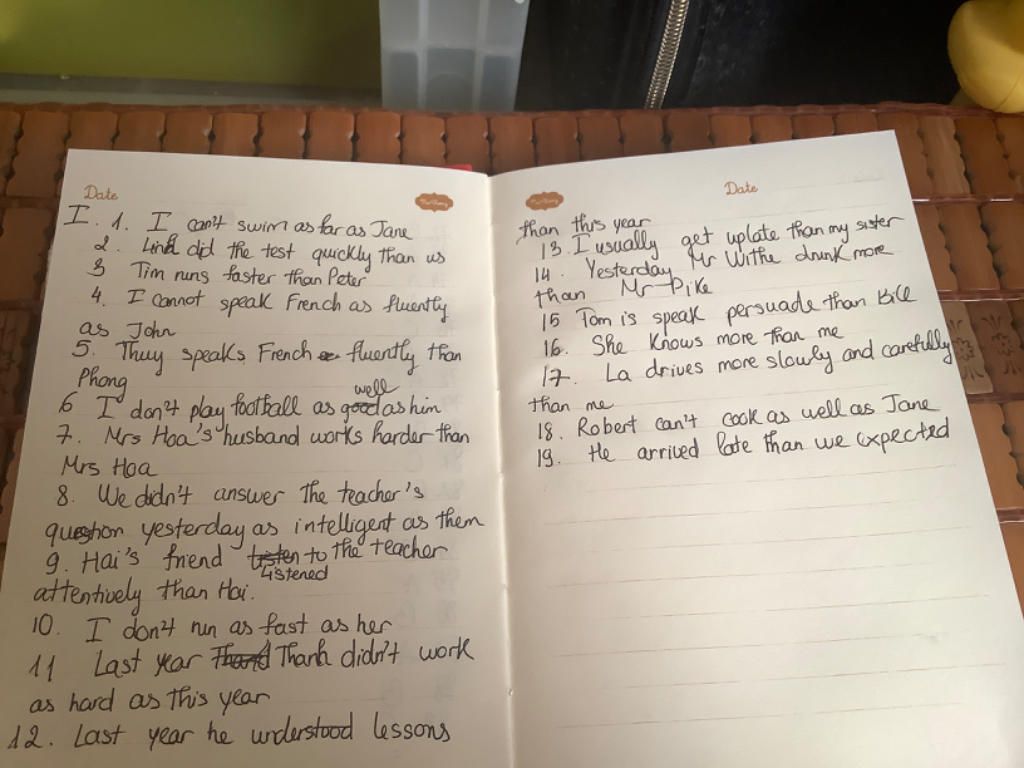 Date
I. 1. I can't swim as far as Jane
2. Linh did the test quickly than us
3 Tim runs faster than Peter
4. I cannot speak French as fluently
as John
5. Thuy speaks French fluently than
Phong
6 I don't play football as good well as him
7. Mrs Hoa's husband works harder than
Mrs Hoa
8. We didn't answer the teacher's
question yesterday as intelligent as them
9. Hai's friend listen listened to the teacher
attentively than Hai.
10. I don't run as fast as her
11 Last year Thanh didn't work
as hard as this year
12. Last year he understood lessons
Date
than this year
13. I usually get up late than my sister
14. Yesterday Mr Withe drunk more
than Mr Pike
15 Tom is speak persuade than Bill
16. She knows more than me
17. La drives more slowly and carefully
than me
18. Robert can't cook as well as Jane
19. He arrived late than we expected